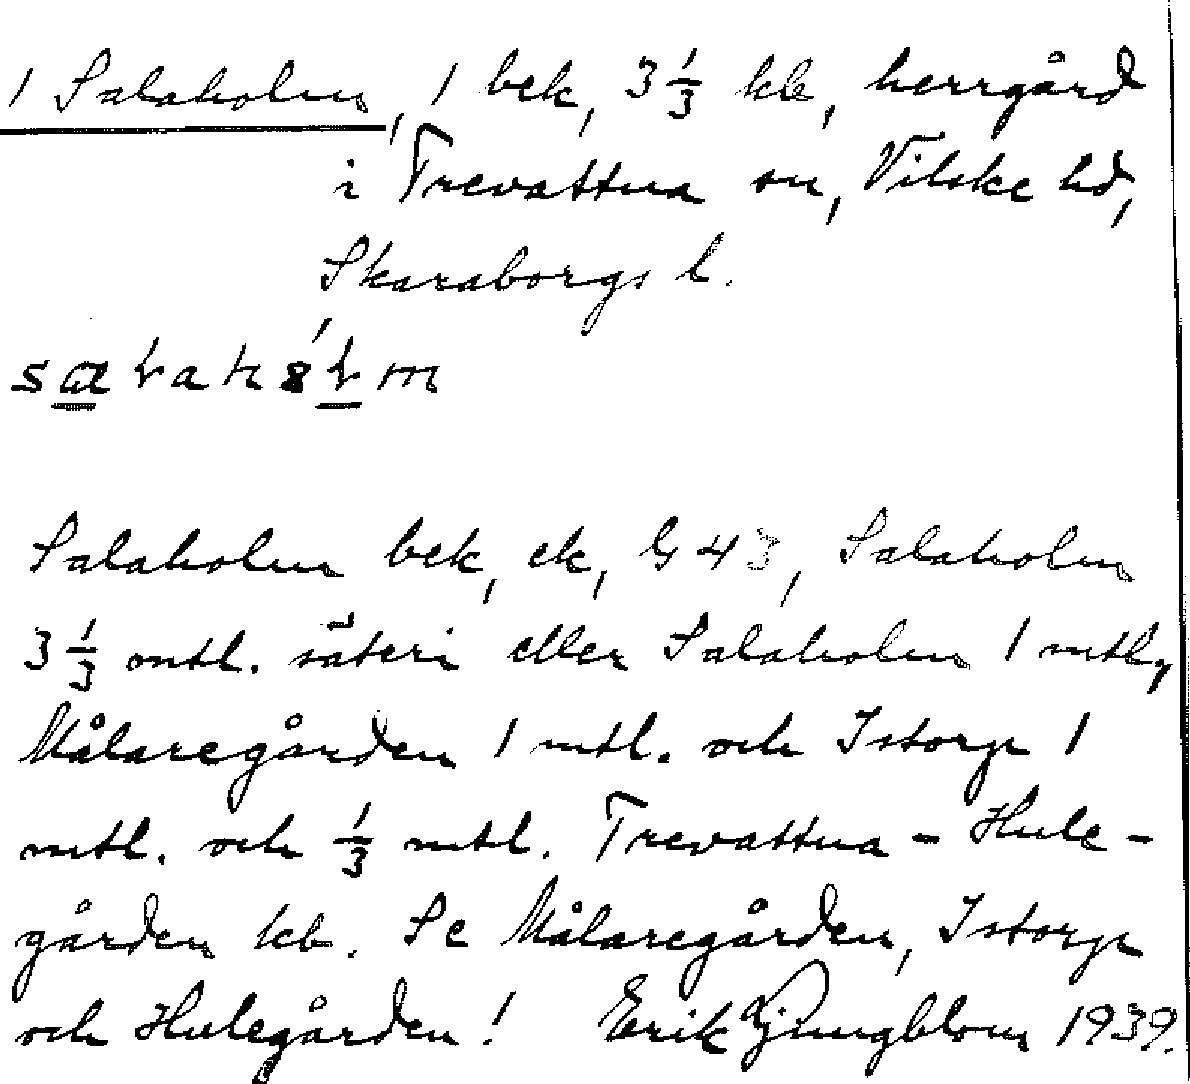 1 Salaholm, 1 bek, 3 1/3 kb, herrgård
i Trevattna sn, Vilske hd,
Skaraborgs l.
Salaholm bek, ek, G 43, Salaholm
3 1/3 mtl. säteri eller Salaholm 1 mtl,
Målaregården 1 mtl. och Istorp 1
mtl. och 1/3 mtl. Trevattna - Hule-
gården kb. Se Målaregården, Istorp
och Hulegården! Erik Ljungblom 1939.